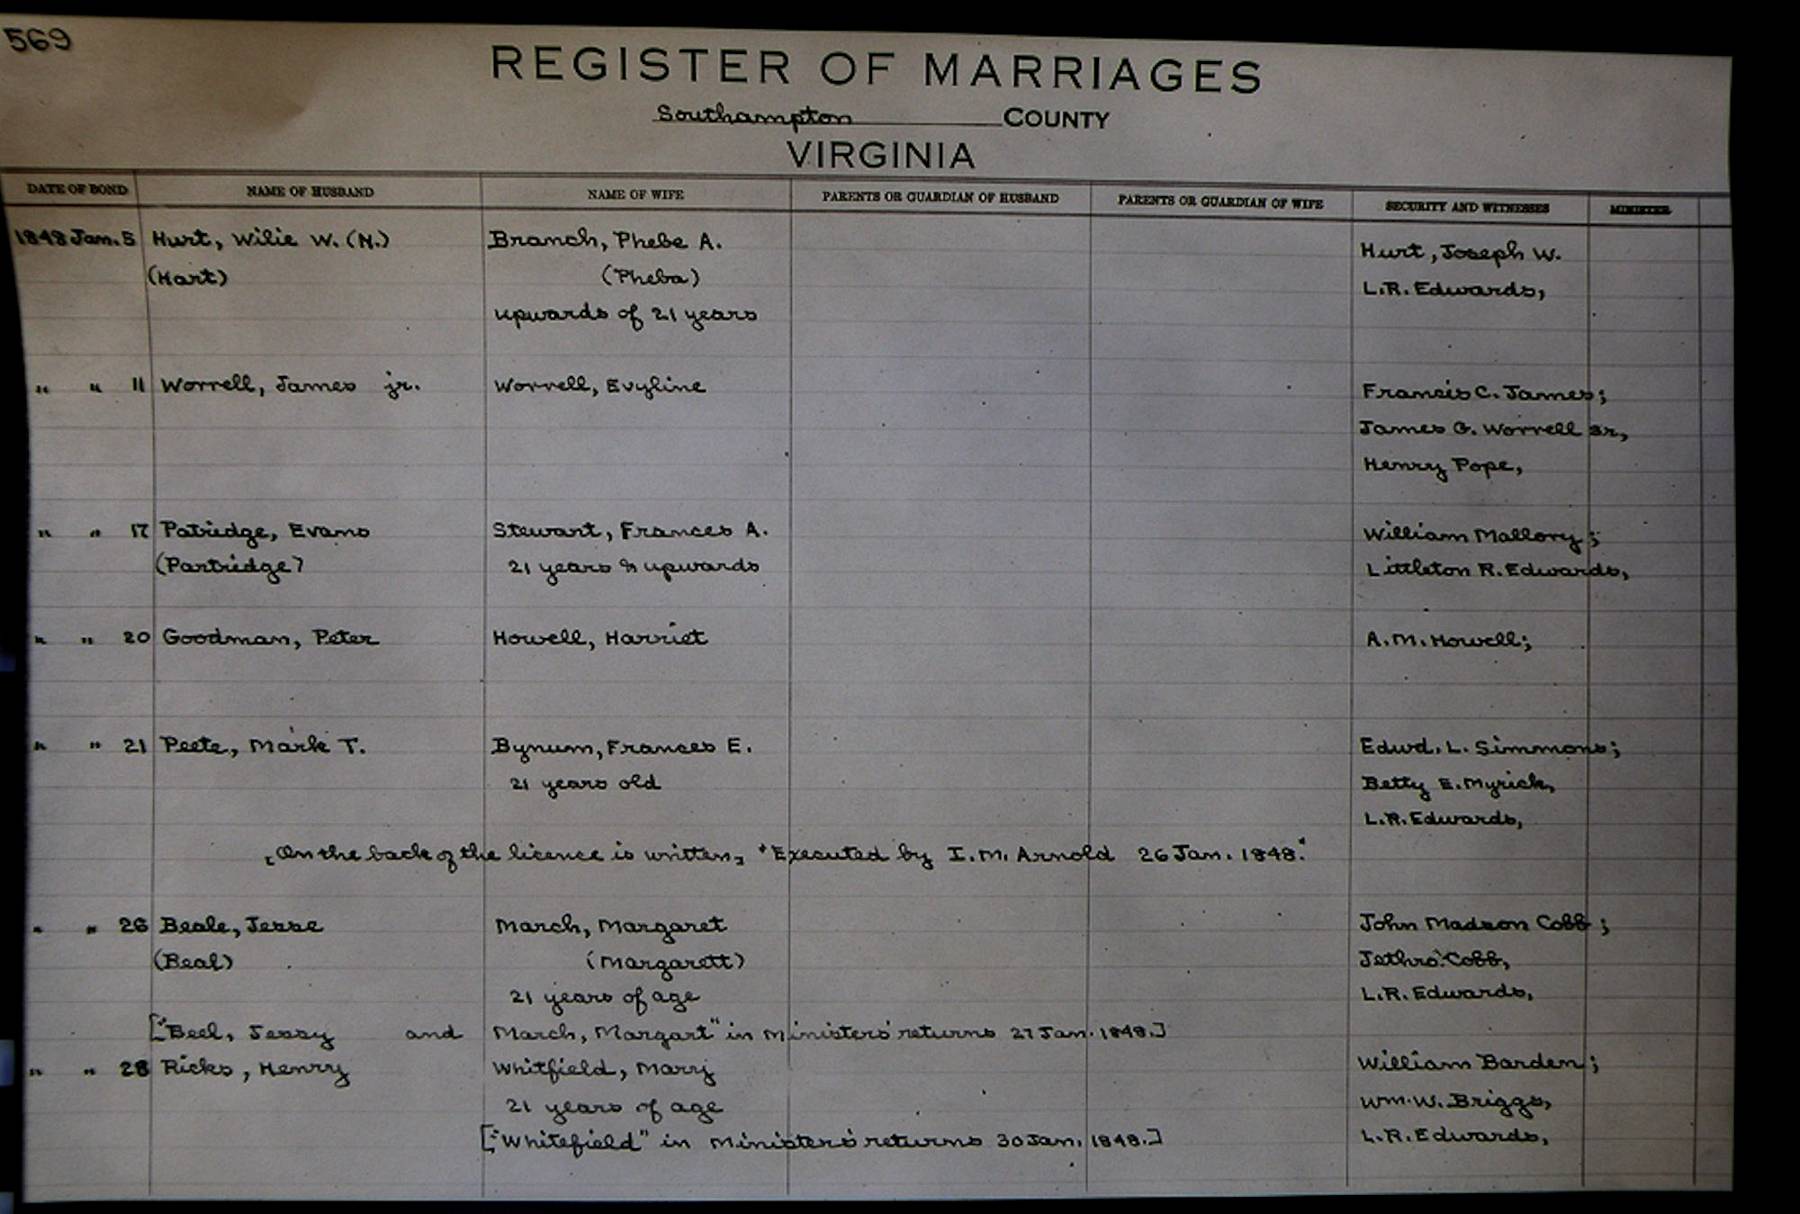 569
REGISTER OF MARRIAGES
Southampton COUNTY
VIRGINIA
DATE OF BOND NAME OF HUSBAND NAME OF WIFE PARENTS OR GUARDIAN OF HUSBAND PARENTS OR GUARDIAN OF WIFE SECURITY AND WITNESSES MINISTER
1848 Jan. 5 Hurt, Wilie W. (N.) Branch, Phebe A. Hurt, Joseph W.
(Hart) (Pheba) L.R. Edwards,
upwards of 21 years
" " 11 Worrell, James jr. Worrell, Evyline Francis C. James;
James G. Worrell sr,
Henry Pope,
" " 17 Patridge, Evans Stewart, Frances A. William Mallory;
(Partridge) 21 years & upwards Littleton R. Edwards,
" " 20 Goodman, Peter Howell, Harriet A. M. Howell;
" " 21 Peete, Mark T. Bynum, Frances E. Edwd. L. Simmons;
21 years old Betty E. Myrick,
L.R. Edwards,
[On the back of the licence is written] "Executed by I. M. Arnold 26 Jan. 1848."
" " 26 Beale, Jesse March, Margaret John Madson Cobb;
(Beal) (Margarett) Jethro Cobb,
21 years of age L.R. Edwards,
["Beel, Jessy and March, Margart" in Ministers' returns 27 Jan. 1848.]
" " 28 Ricks, Henry Whitfield, Mary William Barden;
21 years of age Wm. W. Briggs,
["Whitefield" in Ministers' returns 30 Jan. 1848.] L.R. Edwards,